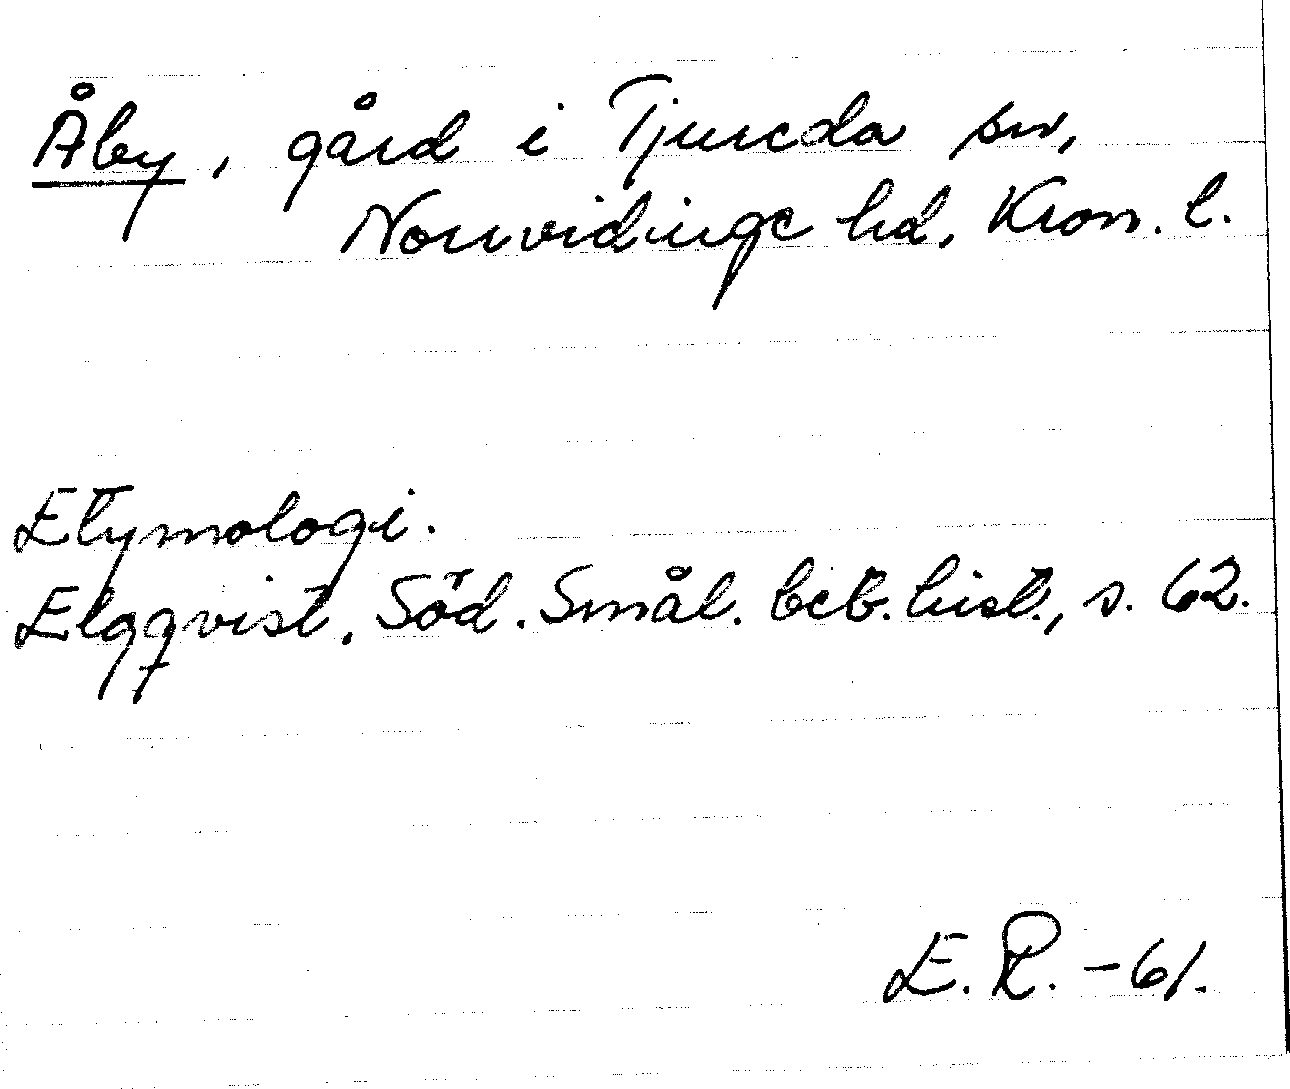 Åby, gård i Tjureda sn,
Norrvidinge hd, Kron. l.
Etymologi.
Elgqvist, Söd. Smål. beb. hist., s. 62.
E. R. -61.